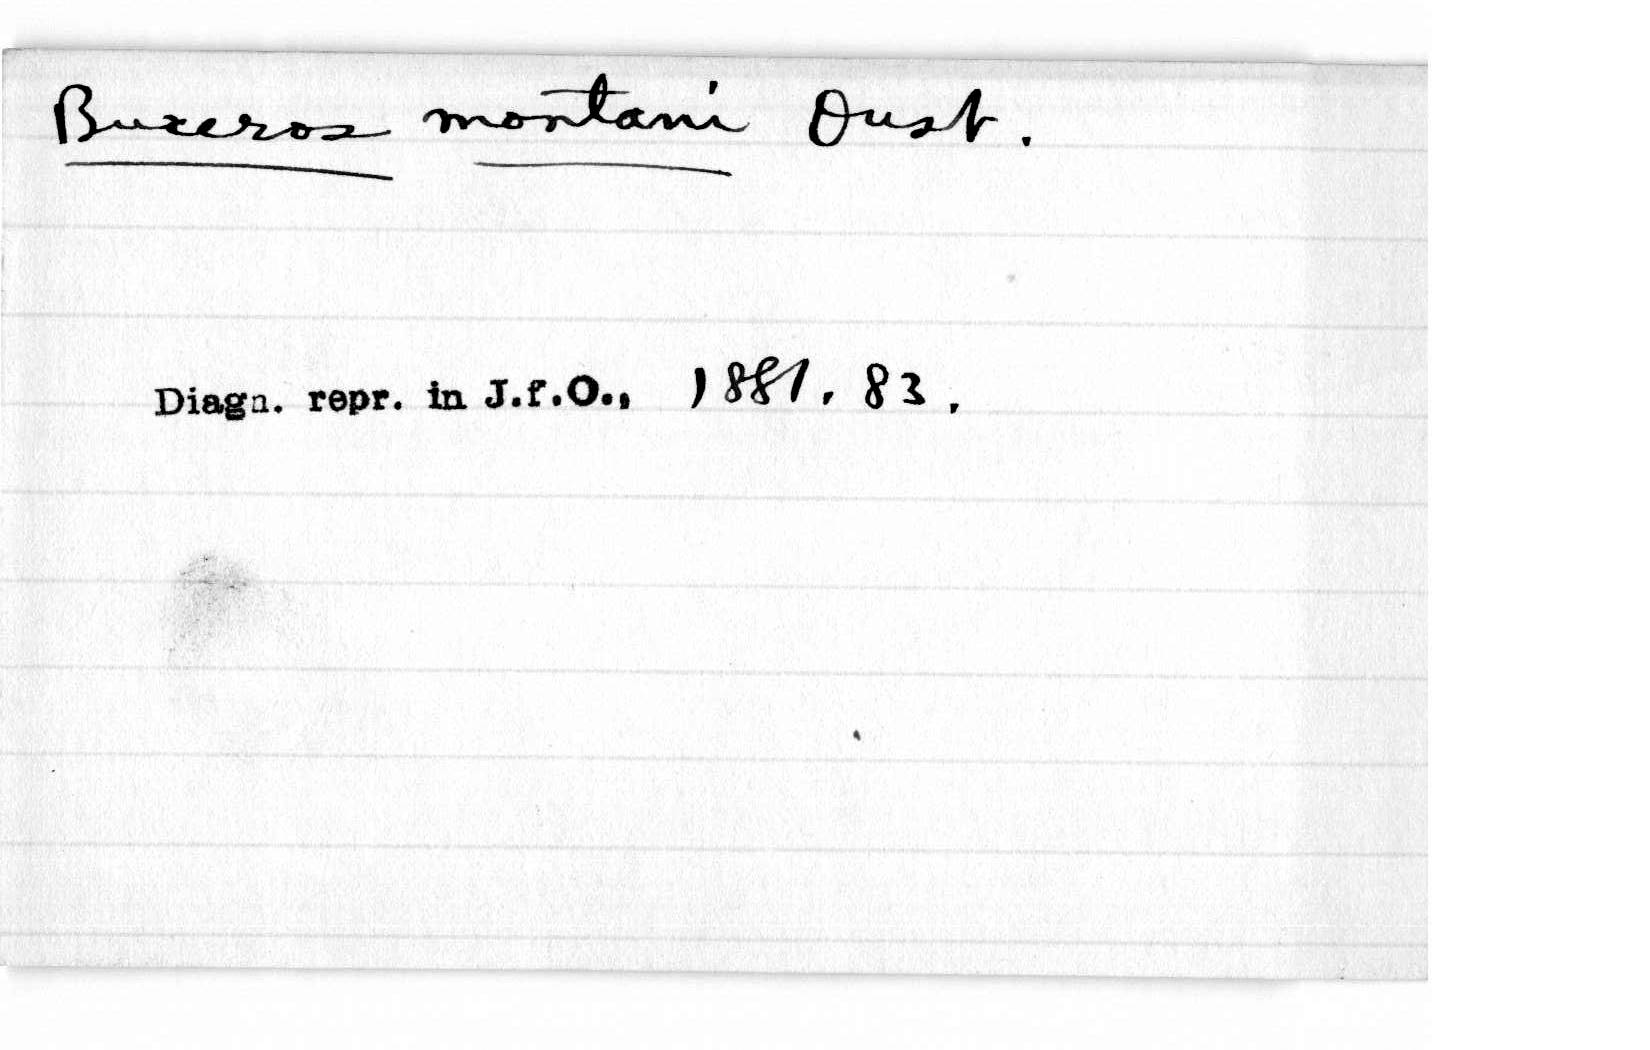 Buceros montani Oust.
Diagn. repr. in J.f.O., 1881, 83.